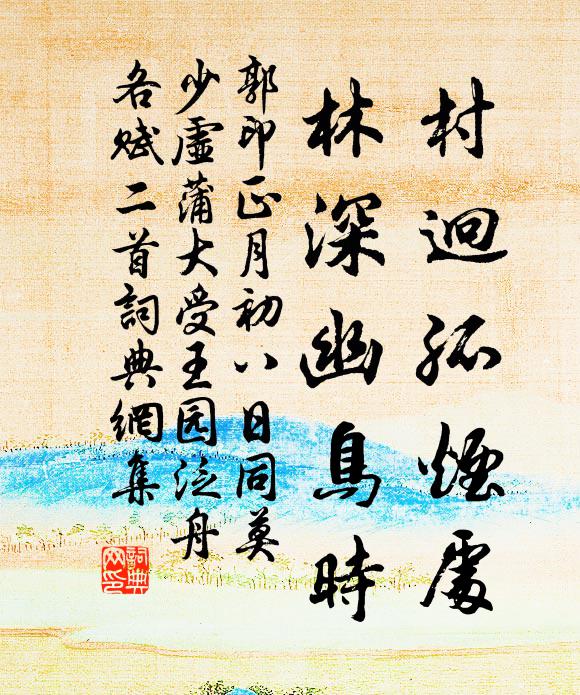 村迥孤煙處
林深幽鳥時
郭印正月初八日同莫
少虛蒲大受王园泛舟
各赋二首詞典網集
詞典
网印